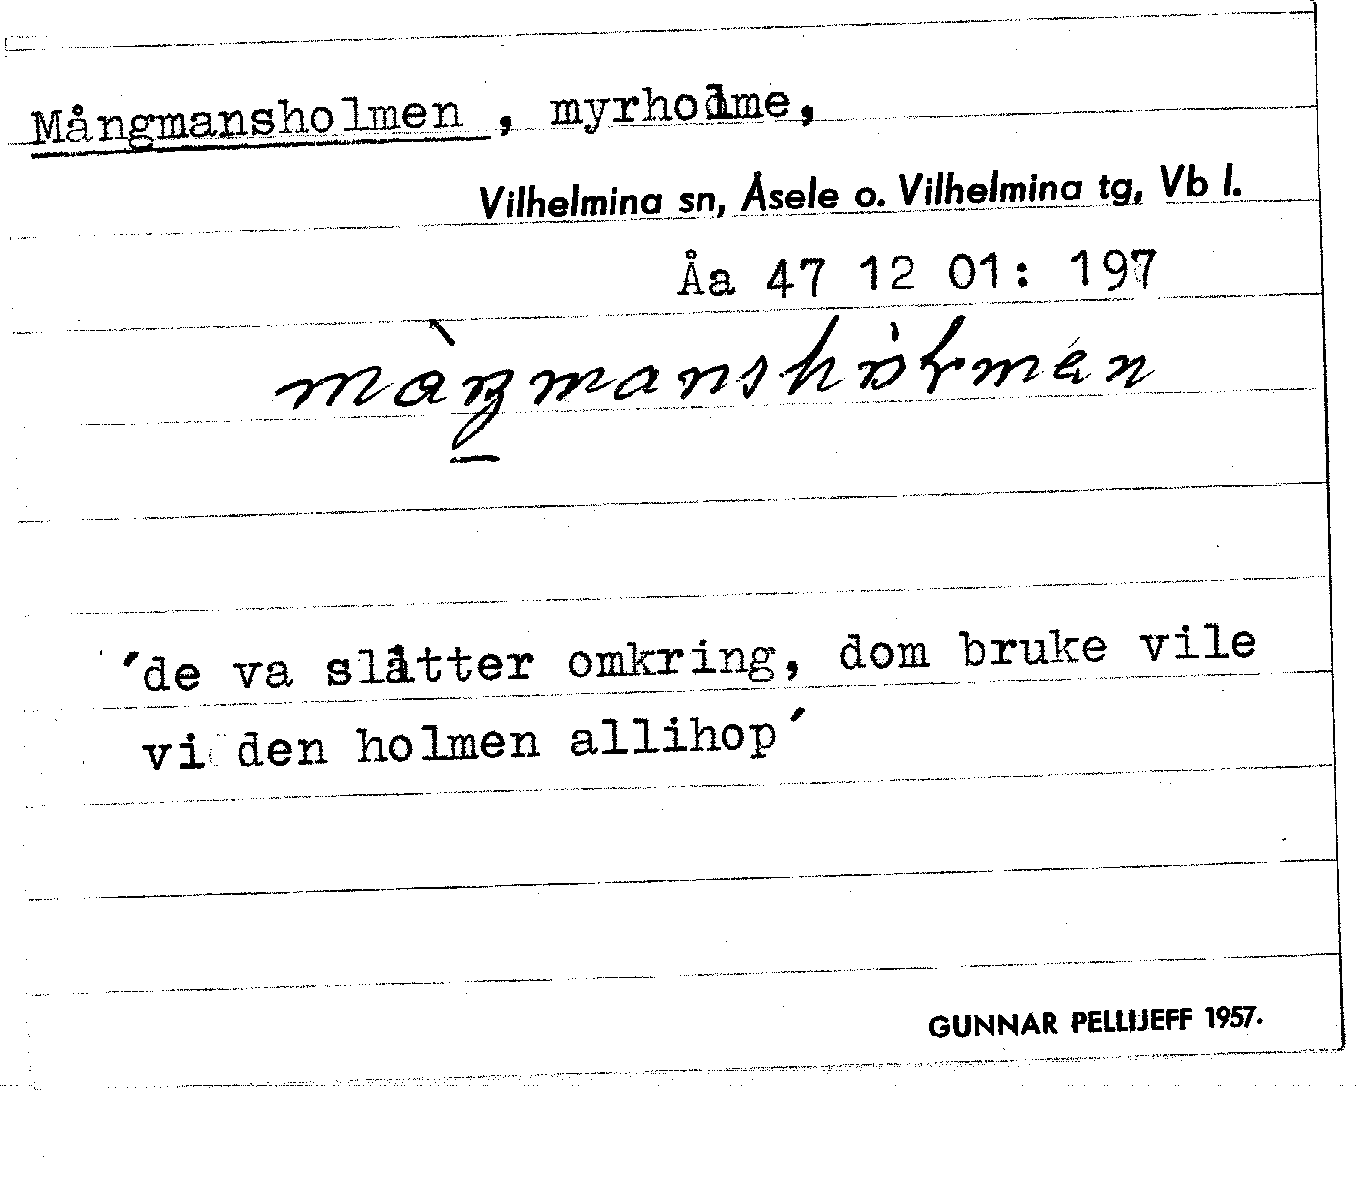 Mångmansholmen, myrholme,
Vilhelmina sn, Åsele o. Vilhelmina tg, Vb l.
Åa 47 12 01: 197
màŋmanshòłmen
'de va slåtter omkring, dom bruke vile
vi den holmen allihop'
GUNNAR PELLIJEFF 1957.